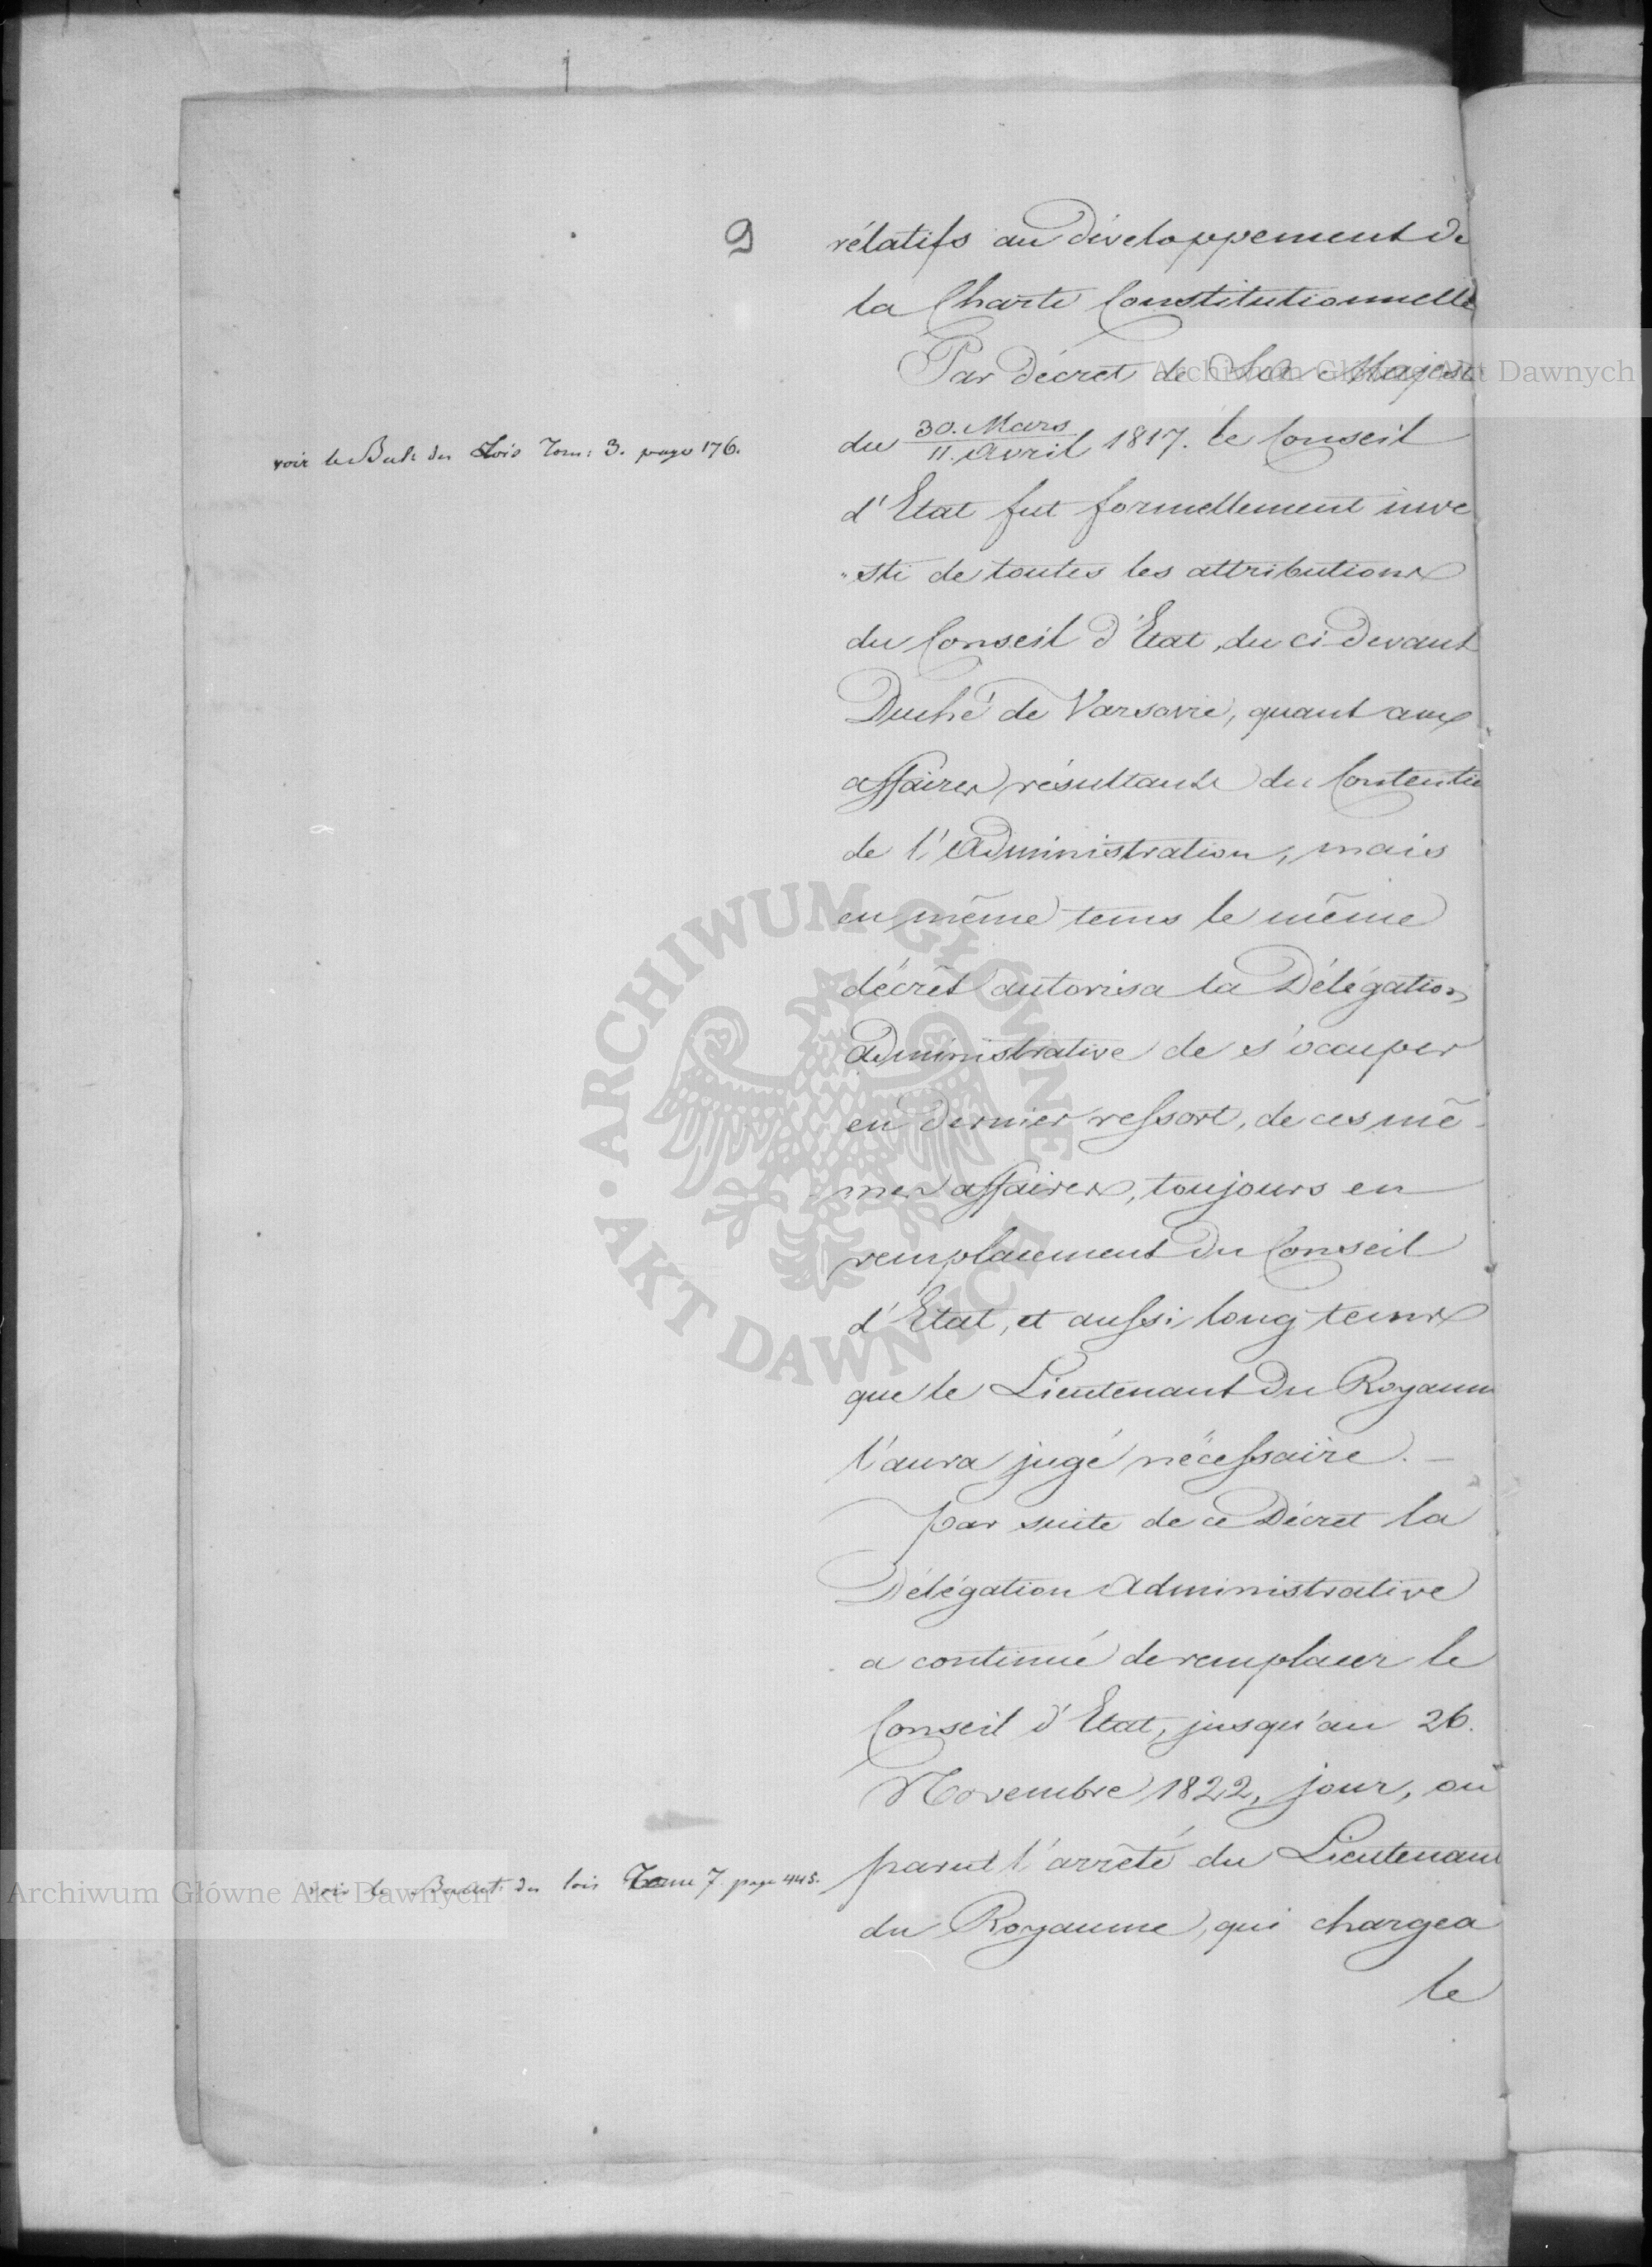 9
rélatifs au développement de
la Charte Constitutionnelle
Par décret de Sa Majesté
du 30. Mars / 11. Avril 1817. le Conseil
voir le Bult: des Lois Tom: 3. page 176.
d'Etat fut formellement inve
"sti de toutes les attributions
du Conseil d'Etat, du ci devant
Duché de Varsovie, quant aux
affaires résultants du Contentie
de l'Administration, mais
en même tems le même
décrèt autorisa la Délégation
Administrative de s'occuper
en dernier ressort, de ces mê-
mes affaires, toujours en
remplacement du Conseil
d'Etat, et aussi long tems
que le Lieutenant du Royaum
l'aura jugé nécessaire. —
par suite de ce Décret la
Délégation Administrative
a continué de remplacer le
Conseil d'Etat, jusqu'au 26.
Novembre 1822, jour, ou
parut l'arrêté du Lieutenant
voir le des lois Tome 7. page 445.
du Royaume, qui chargea
le
Archiwum Główne Akt Dawnych
ARCHIWUM GŁÓWNE · AKT DAWNYCH
Archiwum Główne Akt Dawnych